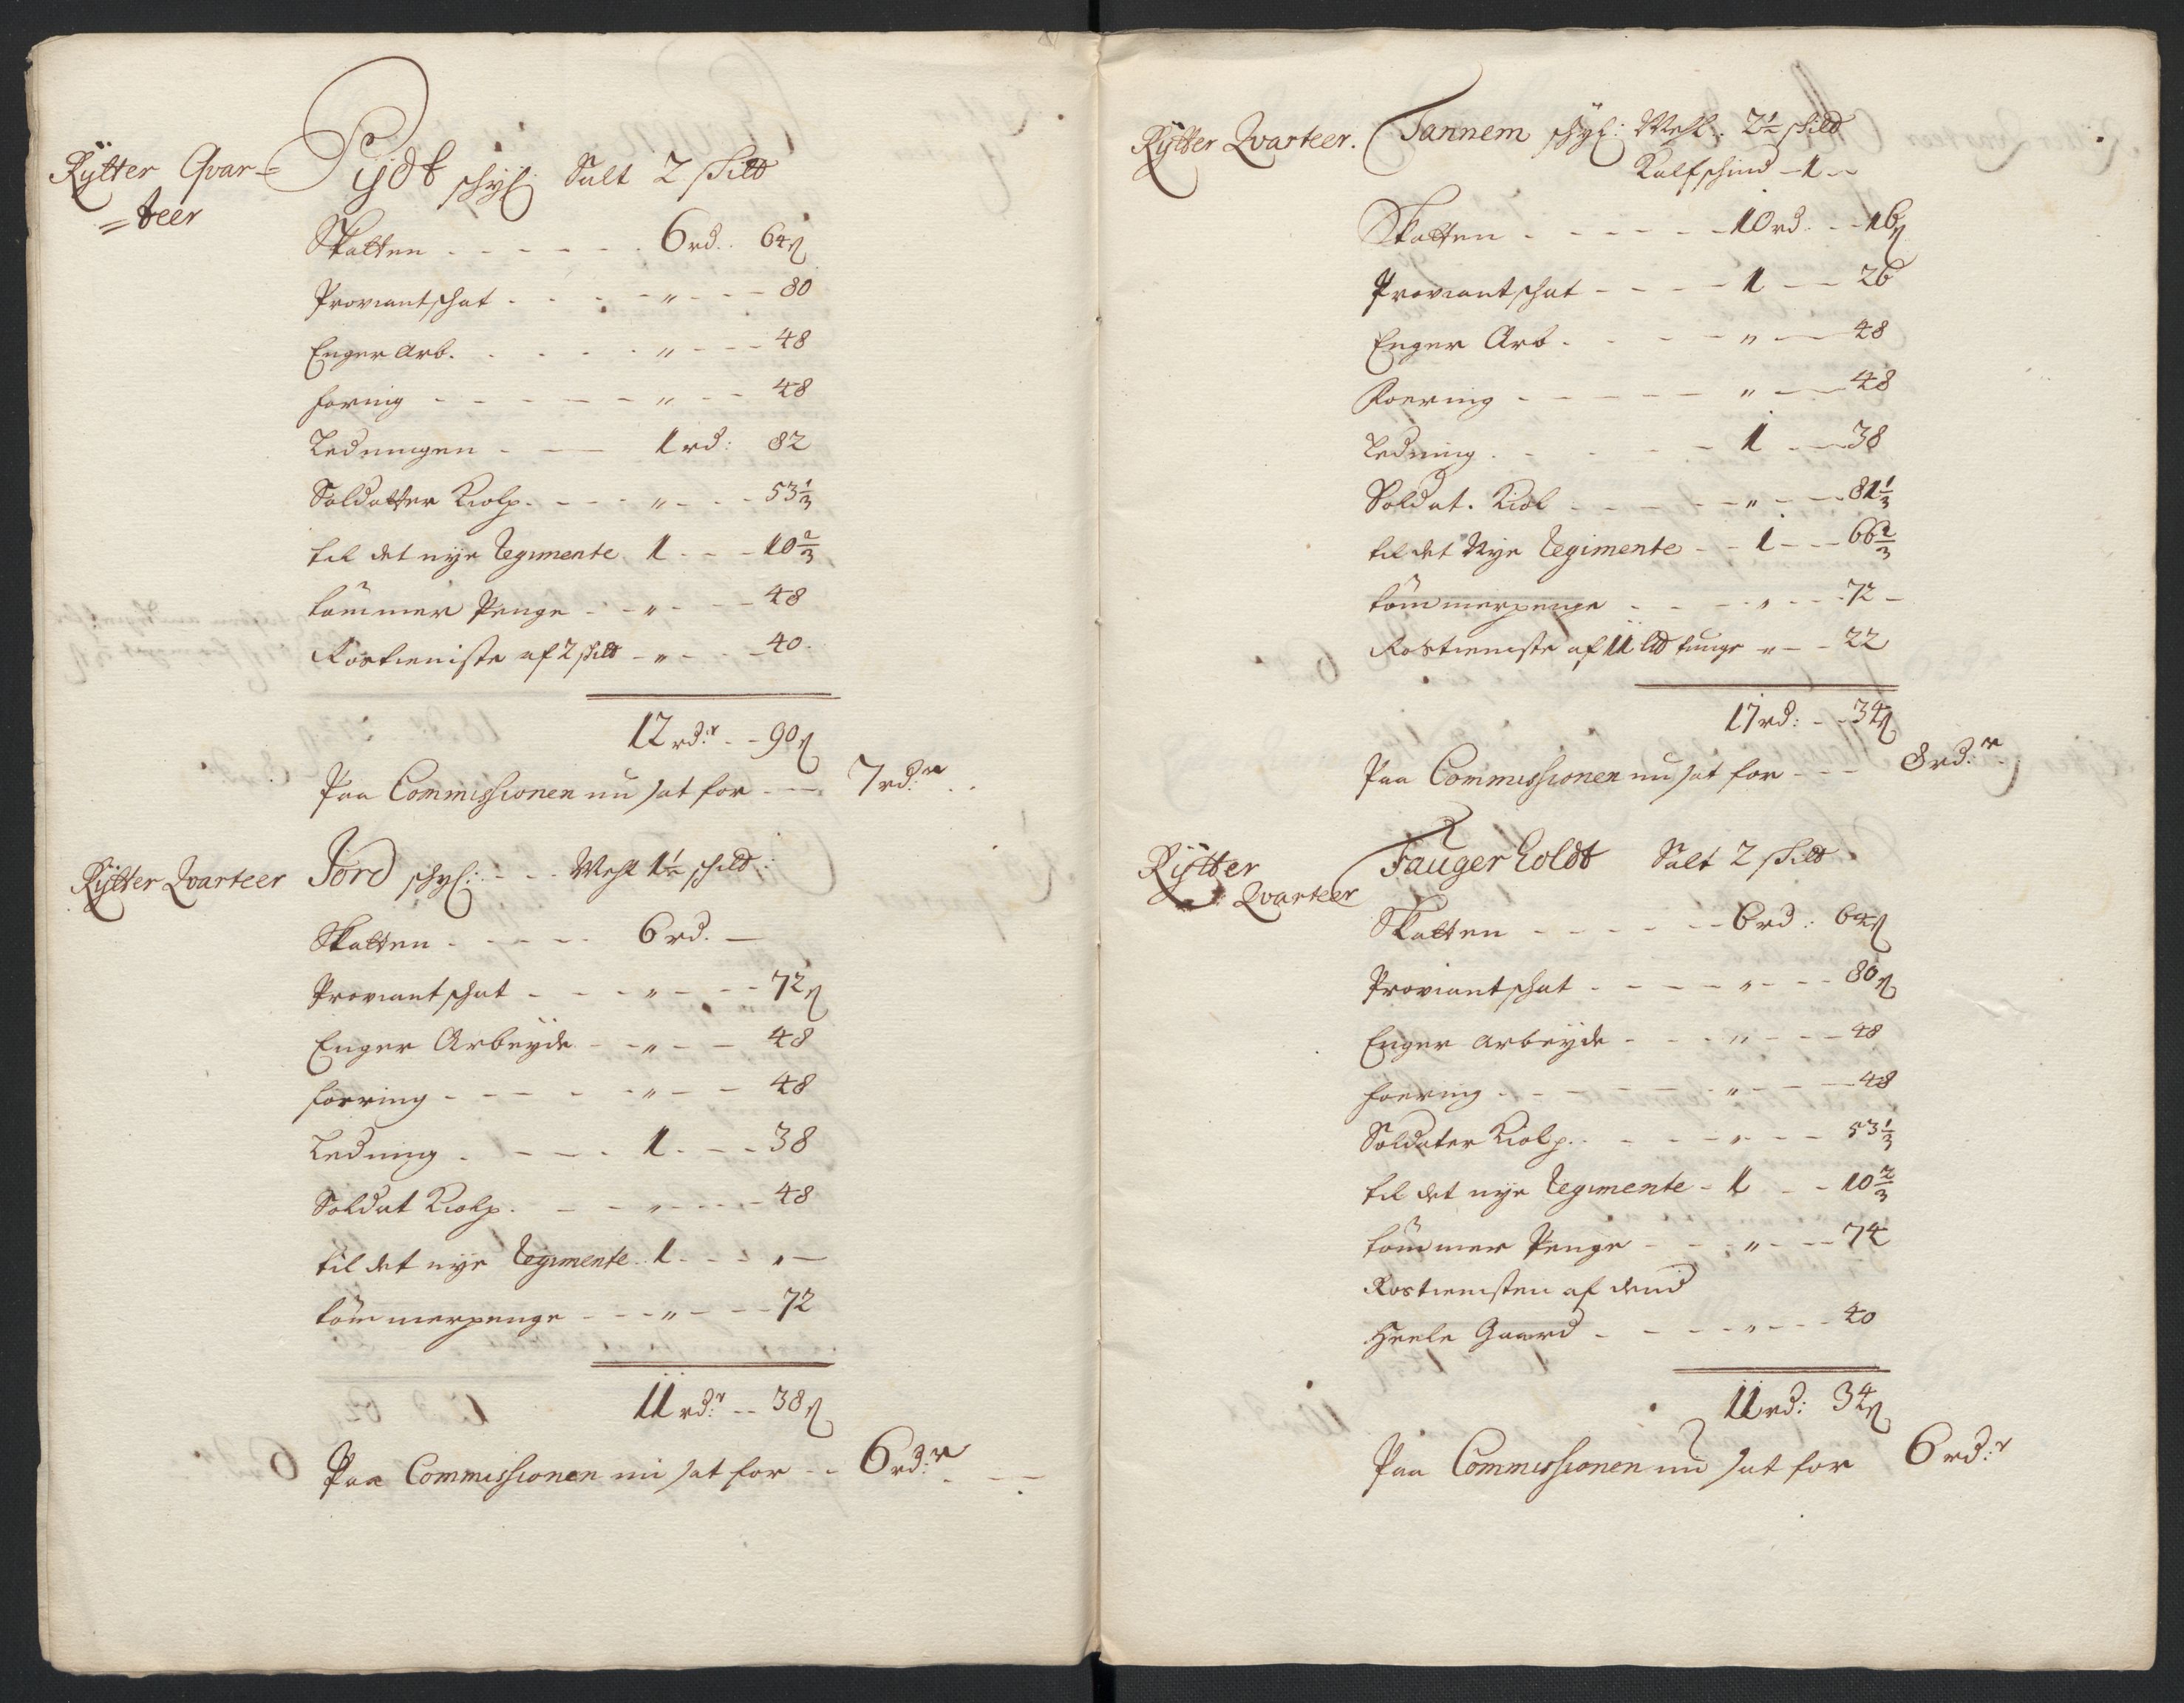 Rytter Qvar=
=teer
Rydt schyl: Salt 2 skild
Skatten - - - - - - 6 rd. 64 ß
Proviantschat - - - - " - - - 80
Enger Arb. - - - - " - - - 48
foring - - - - - " - - - 48
Ledningen - - - 1 rd: 82
Soldatter Kiolp. - - - " - - - 53 1/3
til det nye Regimente 1 - - - 10 2/3
tømmer Penge - - " - - - 48
Rostieniste af 2 skild - " - - - 40
12 rd:r - - 90 ß
Paa Commissionen nu sat for - - - 7 rd:r
Rytter Qvarteer
Jord schyl: - - - Mehl 1 1/2 schild:
Skatten - - - - - 6 rd. -
Proviant schat - - - " - - - 72 ß
Enger Arbeyde - - " - - - 48
forring - - - - - " - - - 48
Ledning - - - - - 1 - - - 38
Soldat Kiolp. - - - " - - - 48
til det nye Regimente 1 - - - " -
tømmerpenge - - - " - - - 72
11 rd:r - - 38 ß
Paa Commissionen nu sat for - - 6 rd:r
Rytter Qvarteer.
Tannem schyl: Mehl. 2 1/2 skild
Kalfschind - 1 - -
Skatten - - - - - - 10 rd. - - 16 ß
Proviantschat - - - - 1 - - - 26
Enger Arb - - - - " - - - 48
Foering - - - - - " - - - 48
Ledning - - - - - 1 - - - 38
Soldat. Kiol - - - - " - - - 81 1/3
til det Nye Regimente - - 1 - - - 66 2/3
tømmerpenge - - - " - - - 72 -
Rostieniste af 11 lld tunge " - - 22
17 rd: - - 34 ß
Paa Commissionen nu sat for - - - 8 rd:r
Rytter
Qvarteer
Fauger Holdt Salt 2 skild
Skatten - - - - - - 6 rd: 64 ß
Proviantschat - - - - " - - - 80 ß
Enger arbeyde - - - " - - - 48
foering - - - - - " - - - 48
Soldater Kiolp. - - - - " - - - 53 1/3
til det nye Regimente - 1 - - 10 2/3
tømmer Penge - - - " - - - 74
Rostienisten af dend
Heele Gaard - - - - " - - - 40
11 rd: 34 ß
Paa Commissionen nu sat for 6 rd:r